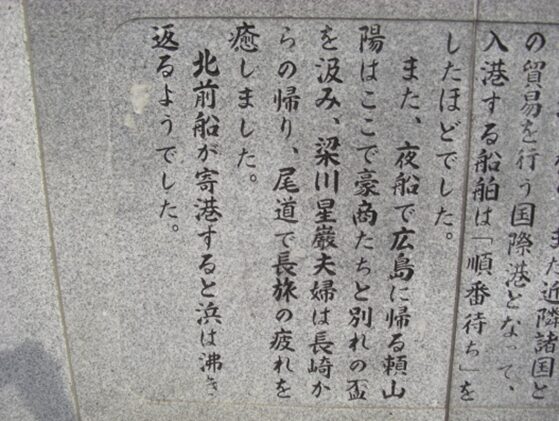 また近隣諸国と
の貿易を行う国際港となって、
入港する船舶は「順番待ち」を
したほどでした。
また、夜船で広島に帰る頼山
陽はここで豪商たちと別れの盃
を汲み、梁川星巌夫婦は長崎か
らの帰り、尾道で長旅の疲れを
癒しました。
北前船が寄港すると浜は沸き
返るようでした。